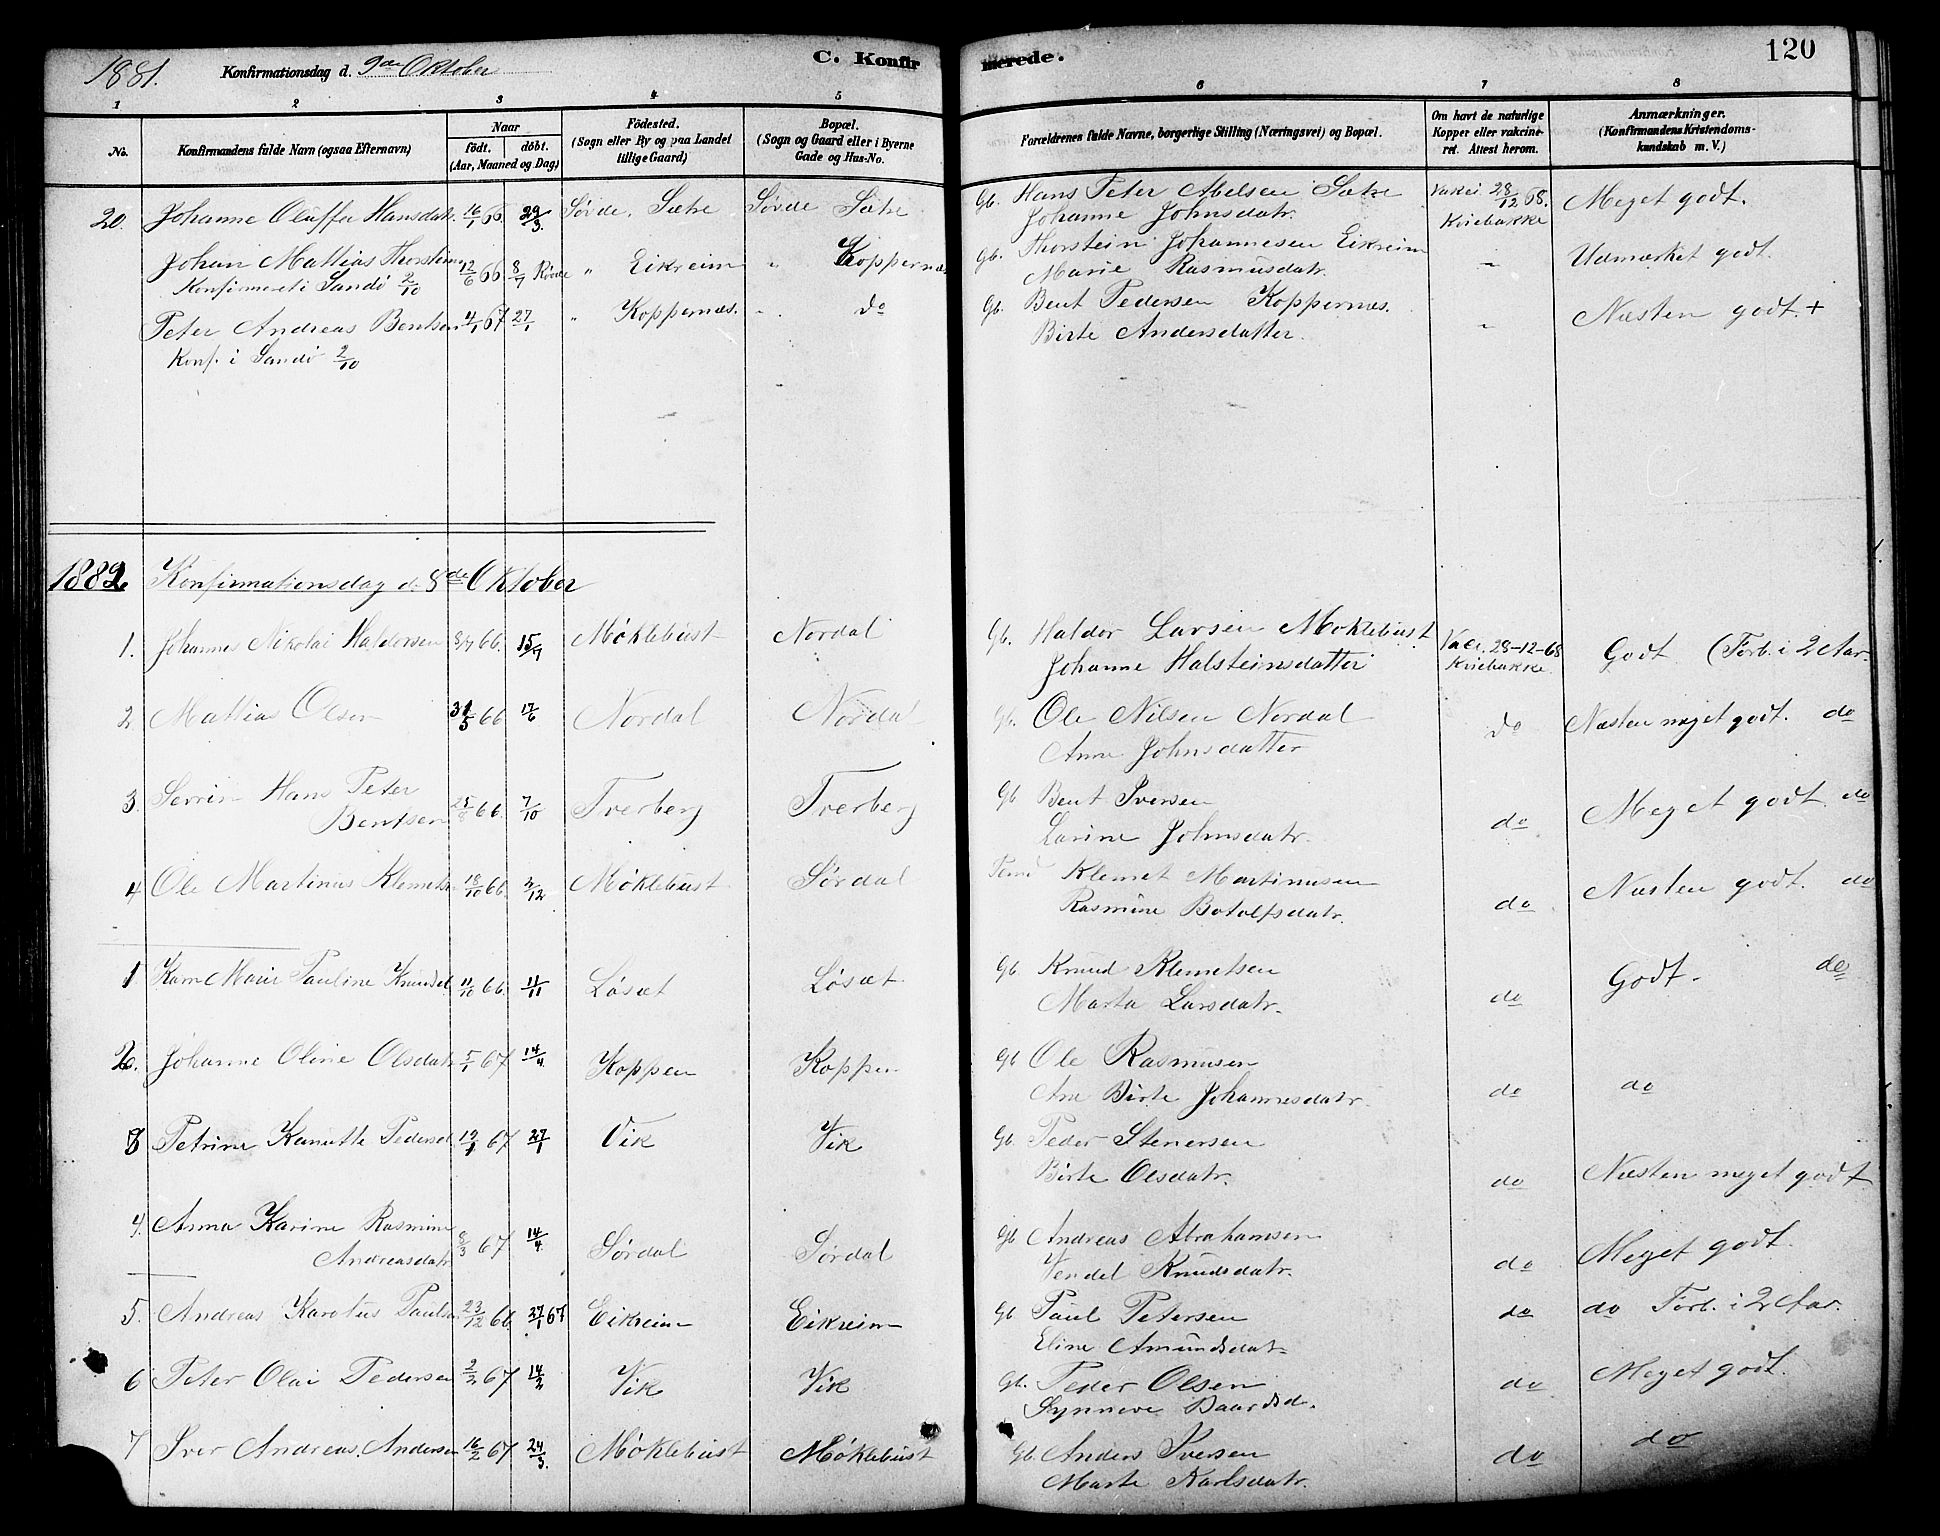 1881. Konfirmationsdag d. 9de Oktober C. Konfirmerede. 120
1 2 3 4 5 6 7 8
No. Konfirmandens fulde Navn (ogsaa Efternavn) Naar født. døbt. (Aar, Maaned og Dag) Fødested. (Sogn eller By og paa Landet tillige Gaard) Bopæl. (Sogn og Gaard eller i Byerne Gade og Hus-No. Forældrenes fulde Navne, borgerlige Stilling (Næringsvei) og Bopæl. Om havt de naturlige Kopper eller vakcineret. Attest herom. Anmærkninger. (Konfirmandens Kristendomskundskab m. V.)
20. Johanne Oluffa Hansdatr. 16/1 66. 29/3. Sørde. Sætre Sørde Sætre Gb. Hans Peter Abelsen Sætre Vakci. 28/12 68. Meget godt.
Johanne Johnsdatr. Kviebakke
Johan Mathias Thorsteins 12/6 66. 8/7 Rovde " Eikreim " Koppernæs Gb. Thorstein Johannesen Eikreim " Udmærket godt.
Konfirmeret i Sandø 2/10 Marie Rasmusdatr.
Peter Andreas Bentsen 4/1 67 27/1 " Koppernæs. " do Gb. Bent Pedersen Koppernæs. " Næsten godt. +
Konf. i Sandø 2/10 Birte Andersdatter.
1882. Konfirmationsdag d. 8de Oktober
1. Johannes Nikolai Haldorsen 8/7 66. 15/7 Møklebust Nordal Gb. Haldor Larsen Møklebust Vacc. 28-12-68 Godt (Forb. i 2 Aar.
Johanne Halsteinsdatter Kviebakke
2 Mathias Olsen 31/5 66 17/6 Nordal Nordal Gb. Ole Nilsen Nordal do Næsten meget godt. do
Anne Johnsdatter
3. Severin Hans Peter 25/8 66. 7/10 Tverberg Tverberg Gb Bent Iversen do Meget godt. do
Bentsen Larine Johnsdatr.
4 Ole Martinus Klemets 18/10 66. 2/12 Møklebust Sørdal Klemet Martinusen do Næsten godt. do
Rasmine Botolfsdatr.
1 Karn Marie Pauline Knudsd. 11/10 66. 11/11 Løsæt Løsæt Gb. Knud Klemetsen do Godt. do
Marta Larsdatr.
2. Johanne Oline Olsdatr 5/1 67 14/4 Koppen Koppen Gb Ole Rasmusen do do
Ane Birte Johannesdatr.
3 Petrine Kanutte Pedersd. 19/1 67 27/1 Vik Vik Gb. Peder Stenersen do Næsten meget godt
Birte Olsdatr.
4. Anna Karine Rasmine 8/3 67. 14/4 Sørdal Sørdal Gb Andreas Abrahamsen do Meget godt.
Andreasdatr. Vendel Knudsdatr.
5. Andreas Karolus Pauls 23/12 66. 27/1 67 Eikreim Eikreim Gb Paul Petersen do do Forb. i 2 Aar.
Eline Amundsdat.
6 Peter Olai Pedersen 2/2 67 14/2 Vik Vik Gb. Peder Olsen do Meget godt.
Synneve Baardsd.
7 Iver Andreas Andersen 16/2 67 24/3. Møklebust Møklebust Gb. Anders Iversen do do
Marte Karlsdatr.